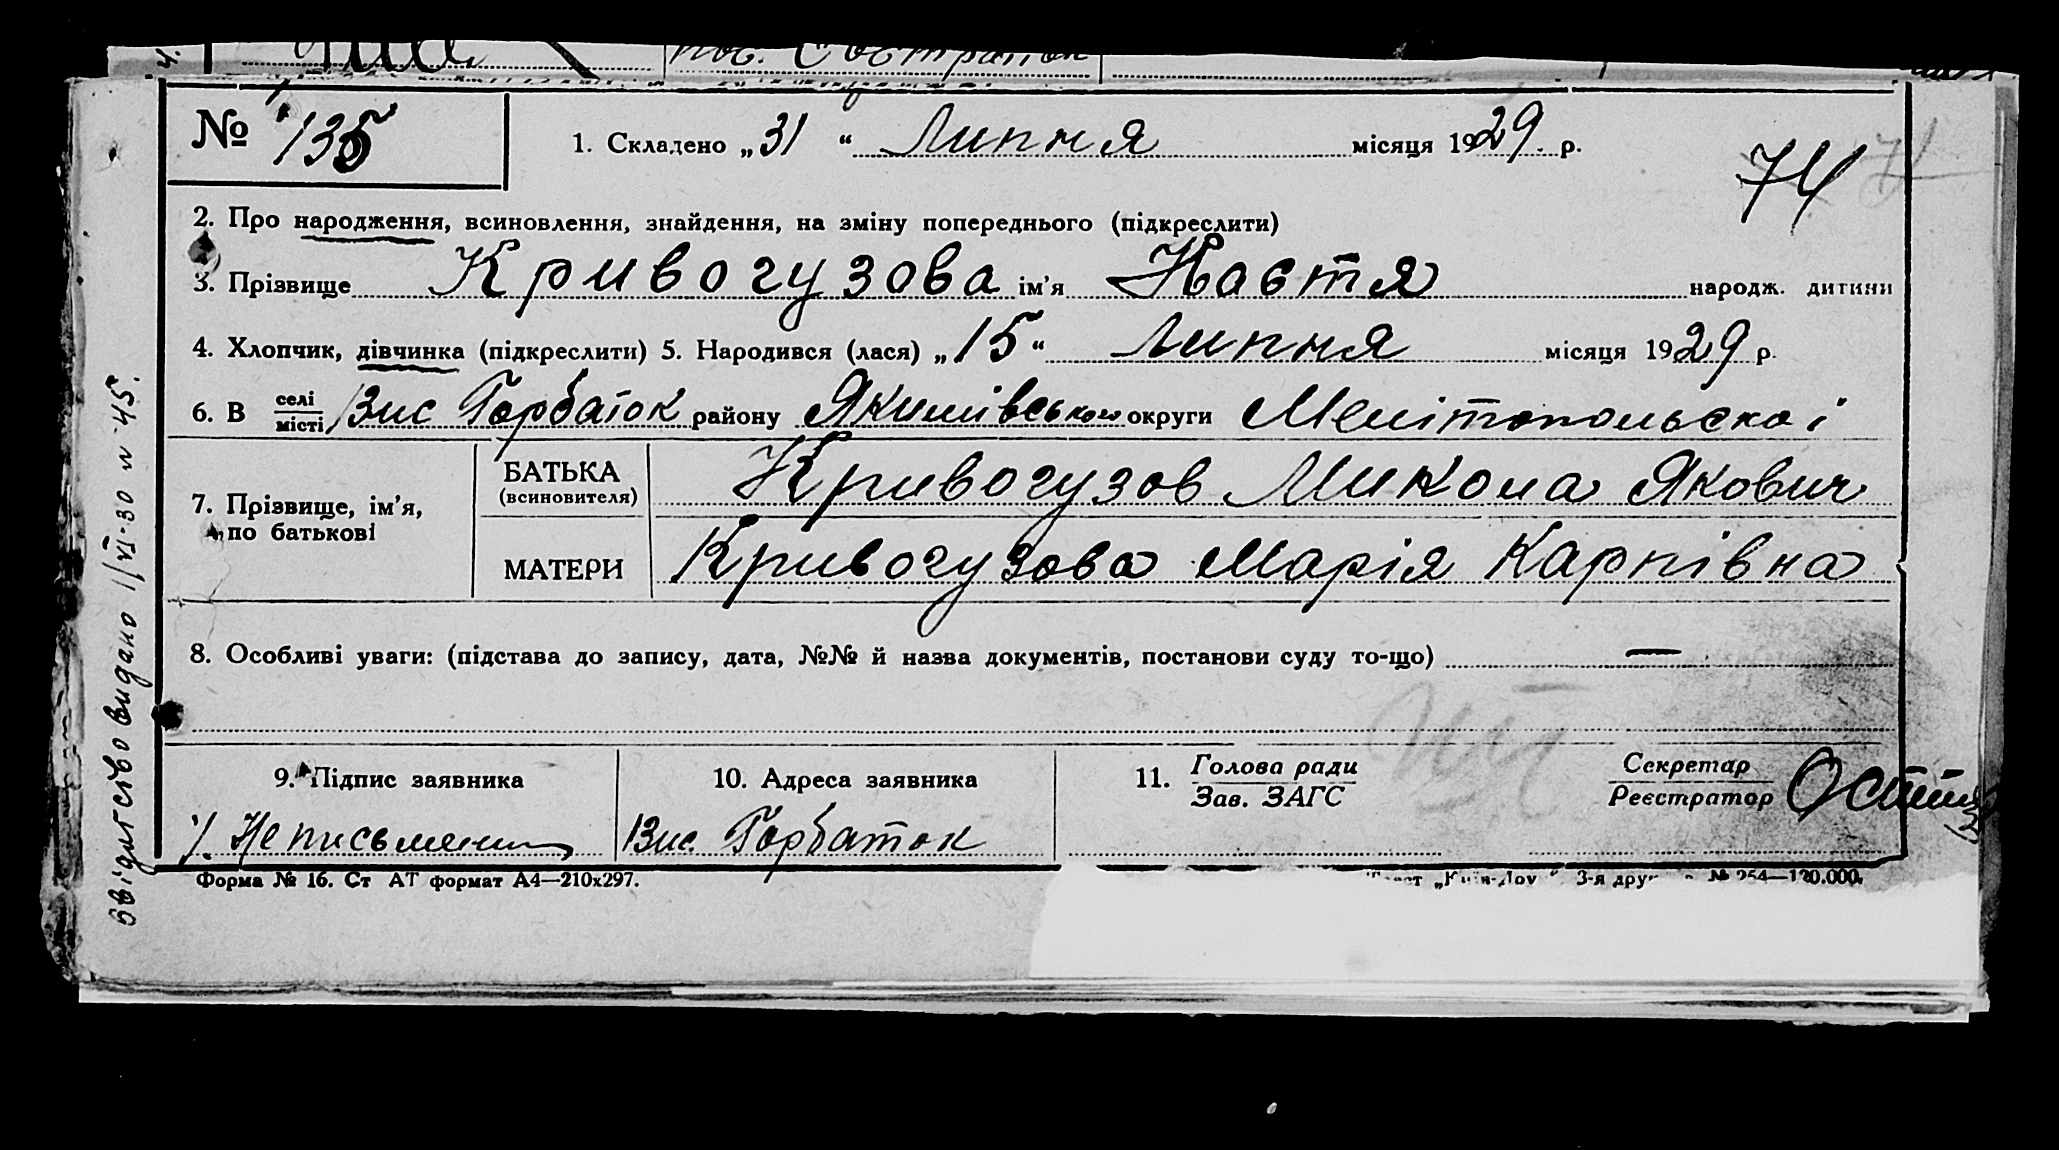 пос. Состраток
№ 135
1. Складено „31“ Липня місяця 1929 р.
74
2. Про народження, всиновлення, знайдення, на зміну попереднього (підкреслити)
3. Прізвище Кривогузова ім'я Настя народж. дитини
4. Хлопчик, дівчинка (підкреслити) 5. Народився (лася) „15“ Липня місяця 1929 р.
6. В селі місті Вис Горбаток району Якимівськом округи Мелітопольскої
7. Прізвище, ім'я, по батькові
БАТЬКА (всиновителя) Кривогузов Микола Якович
МАТЕРИ Кривогузова Марія Карпівна
8. Особливі уваги: (підстава до запису, дата, №№ й назва документів, постанови суду то-що) —
9. Підпис заявника
Неписьменн
10. Адреса заявника
Вис. Горбаток
11. Голова ради
Зав. ЗАГС
Секретар
Реєстратор
Форма № 16. Ст АТ формат А4—210х297.
3-я друк № 254—120.000.
свідитство видано 1/VI-30 N 45.